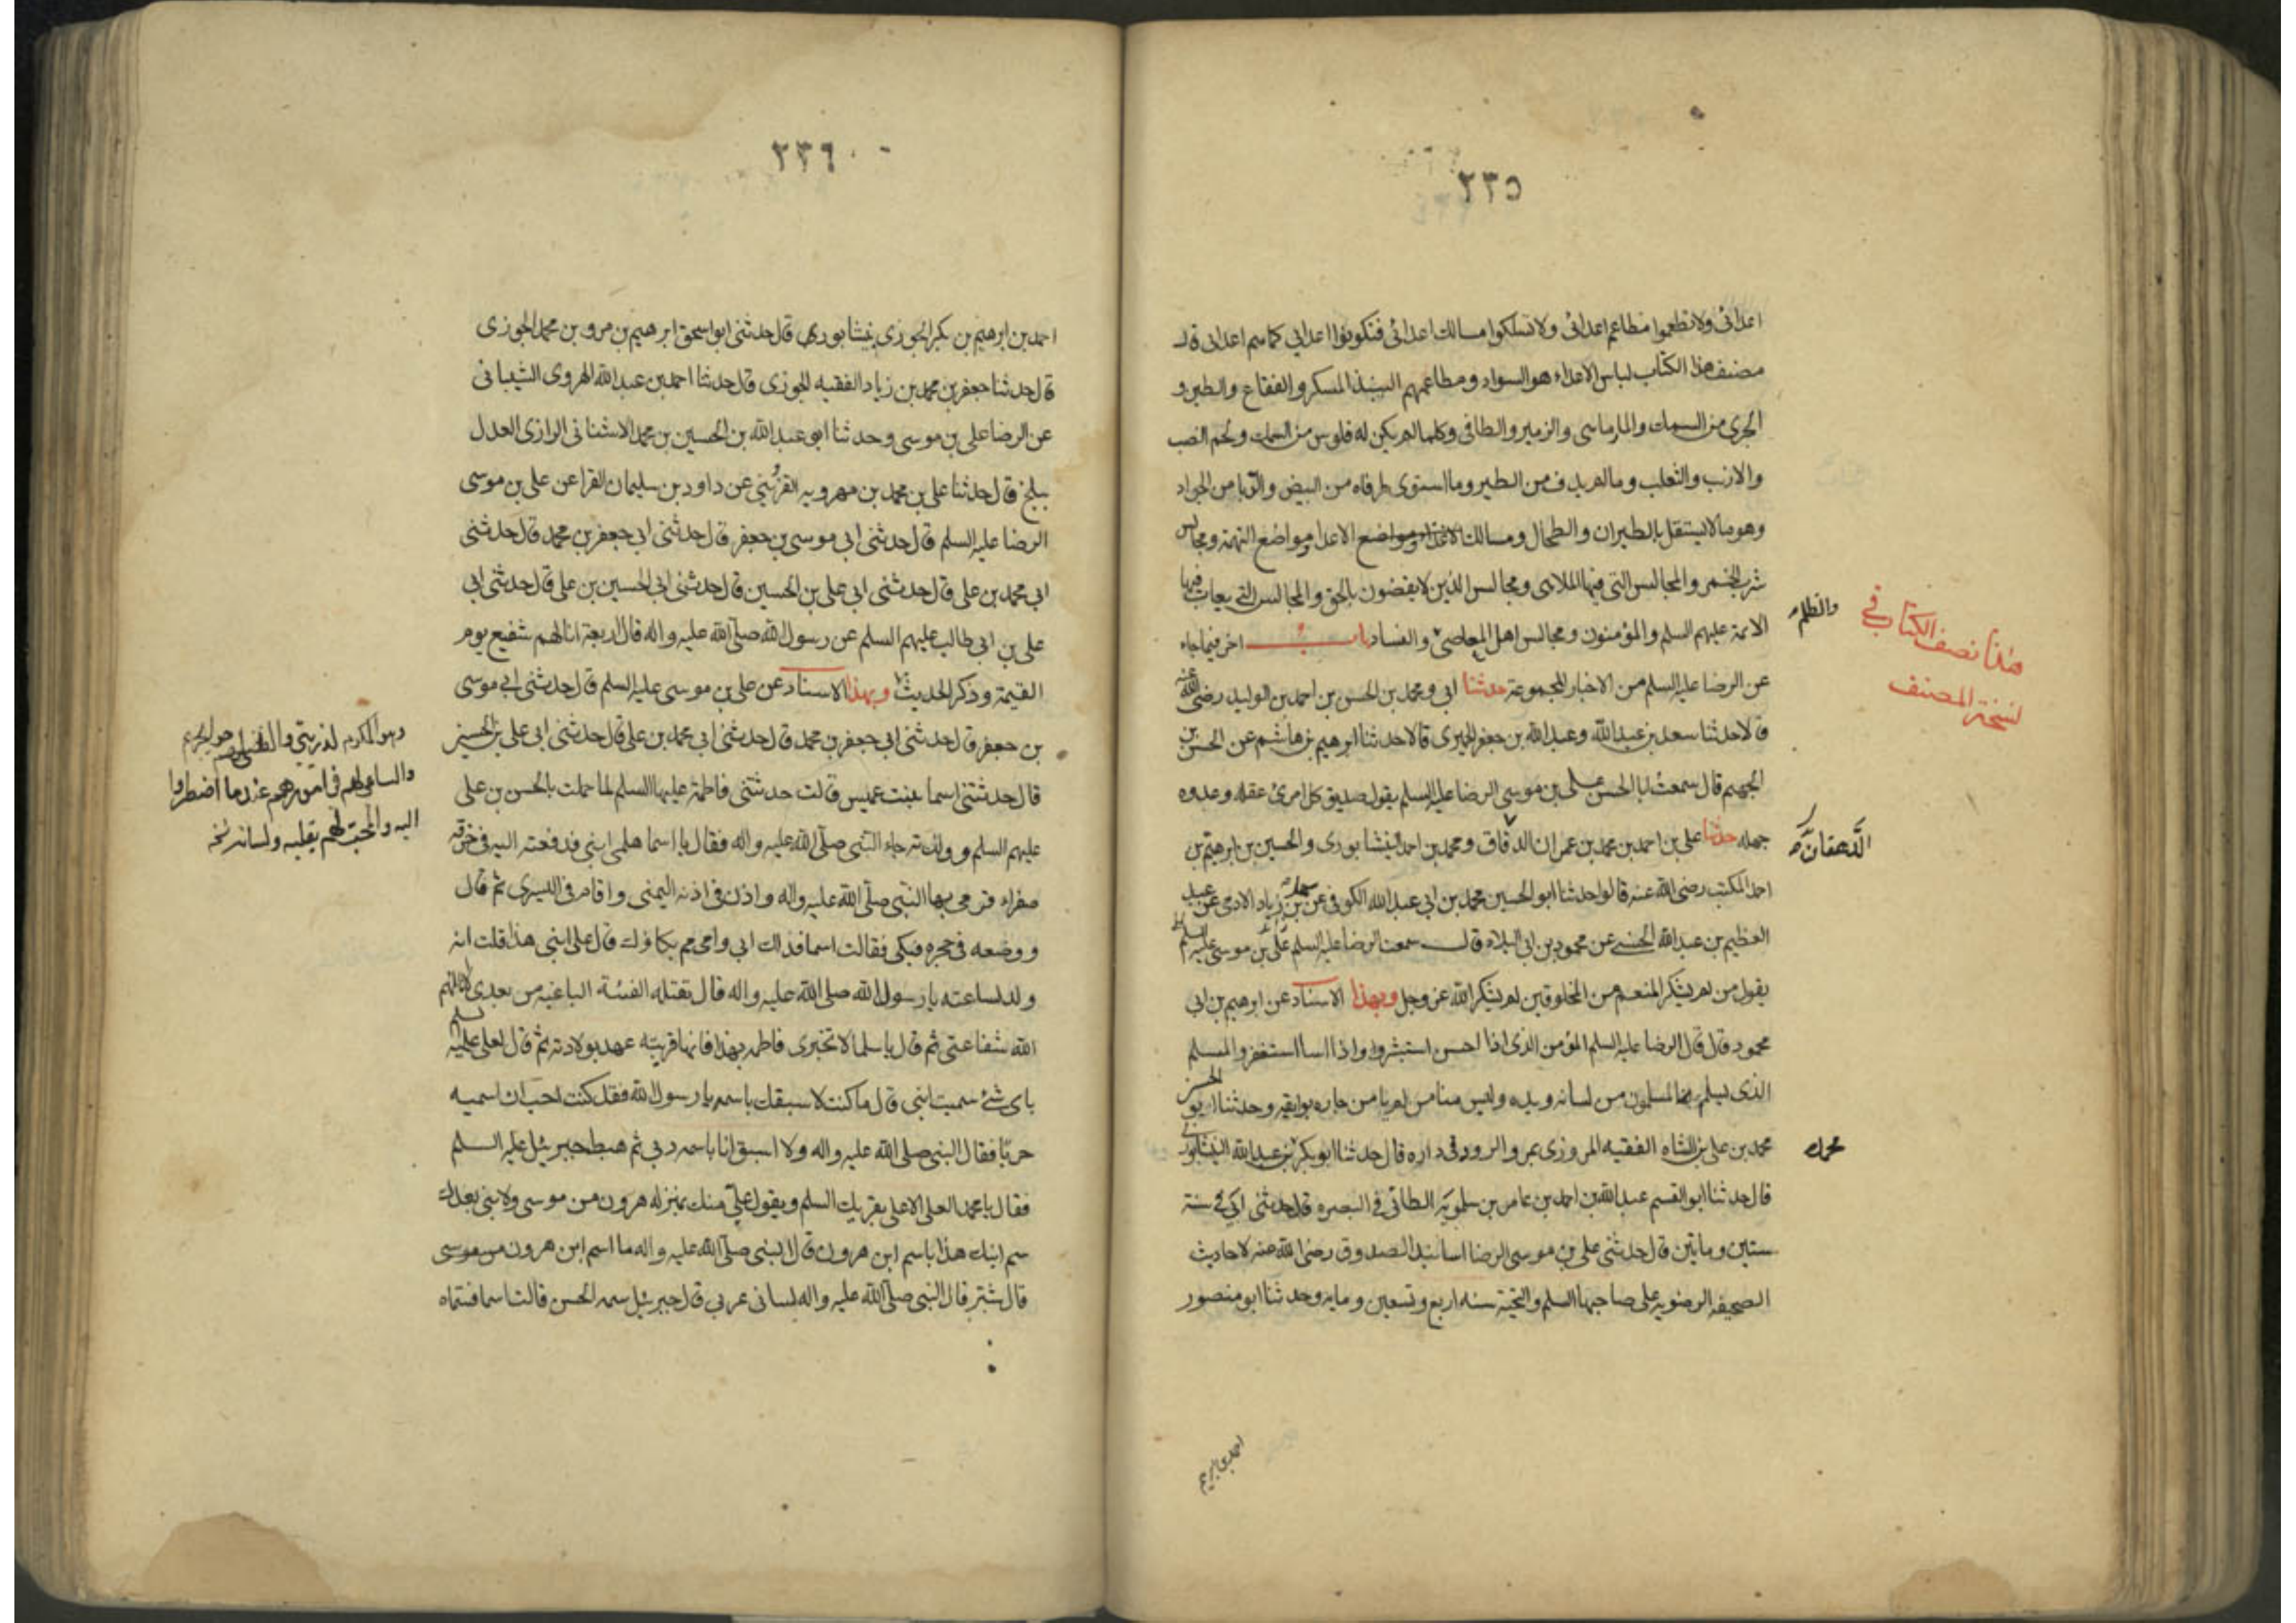 ٢٣٥
اعدائى ولا تطعموا مطاعم اعدائى ولا تسلكوا مسالك اعدائى فتكونوا اعدايى كما هم اعدايى قال
مصنف هذا الكتاب لباس الاعداء هو السواد ومطاعمهم النبيذ المسكر والفقاع والطين و
الجرى من السمك والمارماهى والزمير والطافى وكلما لم يكن له فلوس من السمك ولحم الضب
والارنب والثعلب وما لم يدف من الطير وما استوى طرفاه من البيض والدبا من الجراد
وهو ما لا يستقل بالطيران والطحال ومسالك الاعداء مواضع التهمة ومجالس
شرب الخمر والمجالس التى فيها الملاهى ومجالس الذين لا يقضون بالحق والمجالس التى يعاب فيها
الائمة عليهم السلم والمؤمنون ومجالس اهل المعاصى والفساد باب اخر فيما جاء
والظلم
هذا نصف الكتاب فى
نسخة المصنف
عن الرضا عليه السلم من الاخبار المجموعة حدثنا ابى ومحمد بن الحسن بن احمد بن الوليد رضى الله عنه
قالا حدثنا سعد بن عبد الله وعبد الله بن جعفر الحميرى قالا حدثنا ابرهيم بن هاشم عن الحسن بن
الجهم قال سمعت ابا الحسن على بن موسى الرضا عليه السلم يقول صديق كل امرئ عقله وعدوه
جهله حدثنا على بن احمد بن محمد بن عمران الدقاق ومحمد بن احمد النيشابورى والحسين بن ابرهيم بن
احمد المكتب رضى الله عنه قالوا حدثنا ابو الحسين محمد بن ابى عبد الله الكوفى عن سهل بن زياد الادمى عن عبد
العظيم بن عبد الله الحسنى عن محمود بن ابى البلاد قال سمعت الرضا عليه السلم على بن موسى عليه السلم
يقول من لم يشكر المنعم من المخلوقين لم يشكر الله عز وجل وبهذا الاسناد عن ابرهيم بن ابى
محمود قال قال الرضا عليه السلم المؤمن الذى اذا احسن استبشر واذا اسا استغفر والمسلم
الذى يسلم المسلمون من لسانه ويده وليس منا من لم يامن جاره بوايقه وحدثنا ابو الحسن
محمد بن على بن الشاه الفقيه المروزى بمرو الرود فى داره قال حدثنا ابو بكر بن عبد الله النيشابورى
محمد
قال حدثنا ابو القسم عبد الله بن احمد بن عامر بن سلمويه الطائى فى البصره قال حدثنى ابى فى سنة
ستين وماتين قال حدثنى على بن موسى الرضا اسانيد الصدوق رضى الله عنه لاحاديث
الصحيفه الرضويه على صاحبها السلم والتحية سنه اربع وتسعين ومايه وحدثنا ابو منصور
احمد بن ابرهيم
٢٣٦
احمد بن ابرهيم بن بكر الجوزى بنيشابورى قال حدثنى ابو اسحق ابرهيم بن مرو بن محمد الجوزى
قال حدثنا جعفر بن محمد بن زياد الفقيه الجوزى قال حدثنا احمد بن عبد الله الهروى الشيبانى
عن الرضا على بن موسى وحدثنا ابو عبد الله بن الحسين بن محمد الاشنانى الرازى العدل
ببلخ قال حدثنا على بن محمد بن مهرويه القزوينى عن داود بن سليمان الفرا عن على بن موسى
الرضا عليه السلم قال حدثنى ابى موسى بن جعفر قال حدثنى ابى جعفر بن محمد قال حدثنى
ابى محمد بن على قال حدثنى ابى على بن الحسين قال حدثنى ابى الحسين بن على قال حدثنى ابى
على بن ابى طالب عليهم السلم عن رسول الله صلى الله عليه واله قال اربعة انا لهم شفيع يوم
القيمة وذكر الحديث وبهذا الاسناد عن على بن موسى عليه السلم قال حدثنى ابى موسى
وهو المكرم لذريتى والقاضى لهم حوايجهم
والساعى لهم فى امورهم عند ما اضطروا
اليه والمحب لهم بقلبه ولسانه نخه
بن جعفر قال حدثنى ابى جعفر بن محمد قال حدثنى ابى محمد بن على قال حدثنى ابى على بن الحسين
قال حدثتنى اسما بنت عميس قالت حدثتنى فاطمة عليها السلم لما حملت بالحسن بن على
عليهم السلم وولدته جاء النبى صلى الله عليه واله فقال يا اسما هلمى ابنى فدفعته اليه فى خرقه
صفراء فرمى بها النبى صلى الله عليه واله واذن فى اذنه اليمنى واقام فى اليسرى ثم قال
ووضعه فى حجره فبكى فقالت اسما فداك ابى وامى مم بكاؤك قال على ابنى هذا قلت انه
ولد لساعته يا رسول الله صلى الله عليه واله قال تقتله الفئة الباغيه من بعدى لا انالهم
الله شفاعتى ثم قال يا سلما لا تخبرى فاطمه بهذا فانها قريبه عهد بولادته ثم قال لعلى عليه السلم
باى شئ سميت ابنى قال ما كنت لاسبقك باسمه يا رسول الله فقد كنت احب ان اسميه
حربا فقال النبى صلى الله عليه واله ولا اسبق انا باسمه ربى ثم هبط جبرئيل عليه السلم
فقال يا محمد العلى الاعلى يقريك السلم ويقول على منك بمنزله هرون من موسى ولا نبى بعدك
سم ابنك هذا باسم ابن هرون قال النبى صلى الله عليه واله ما اسم ابن هرون من موسى
قال شبر قال النبى صلى الله عليه واله لسانى عربى قال جبرئيل سمه الحسن قالت اسما فسماه